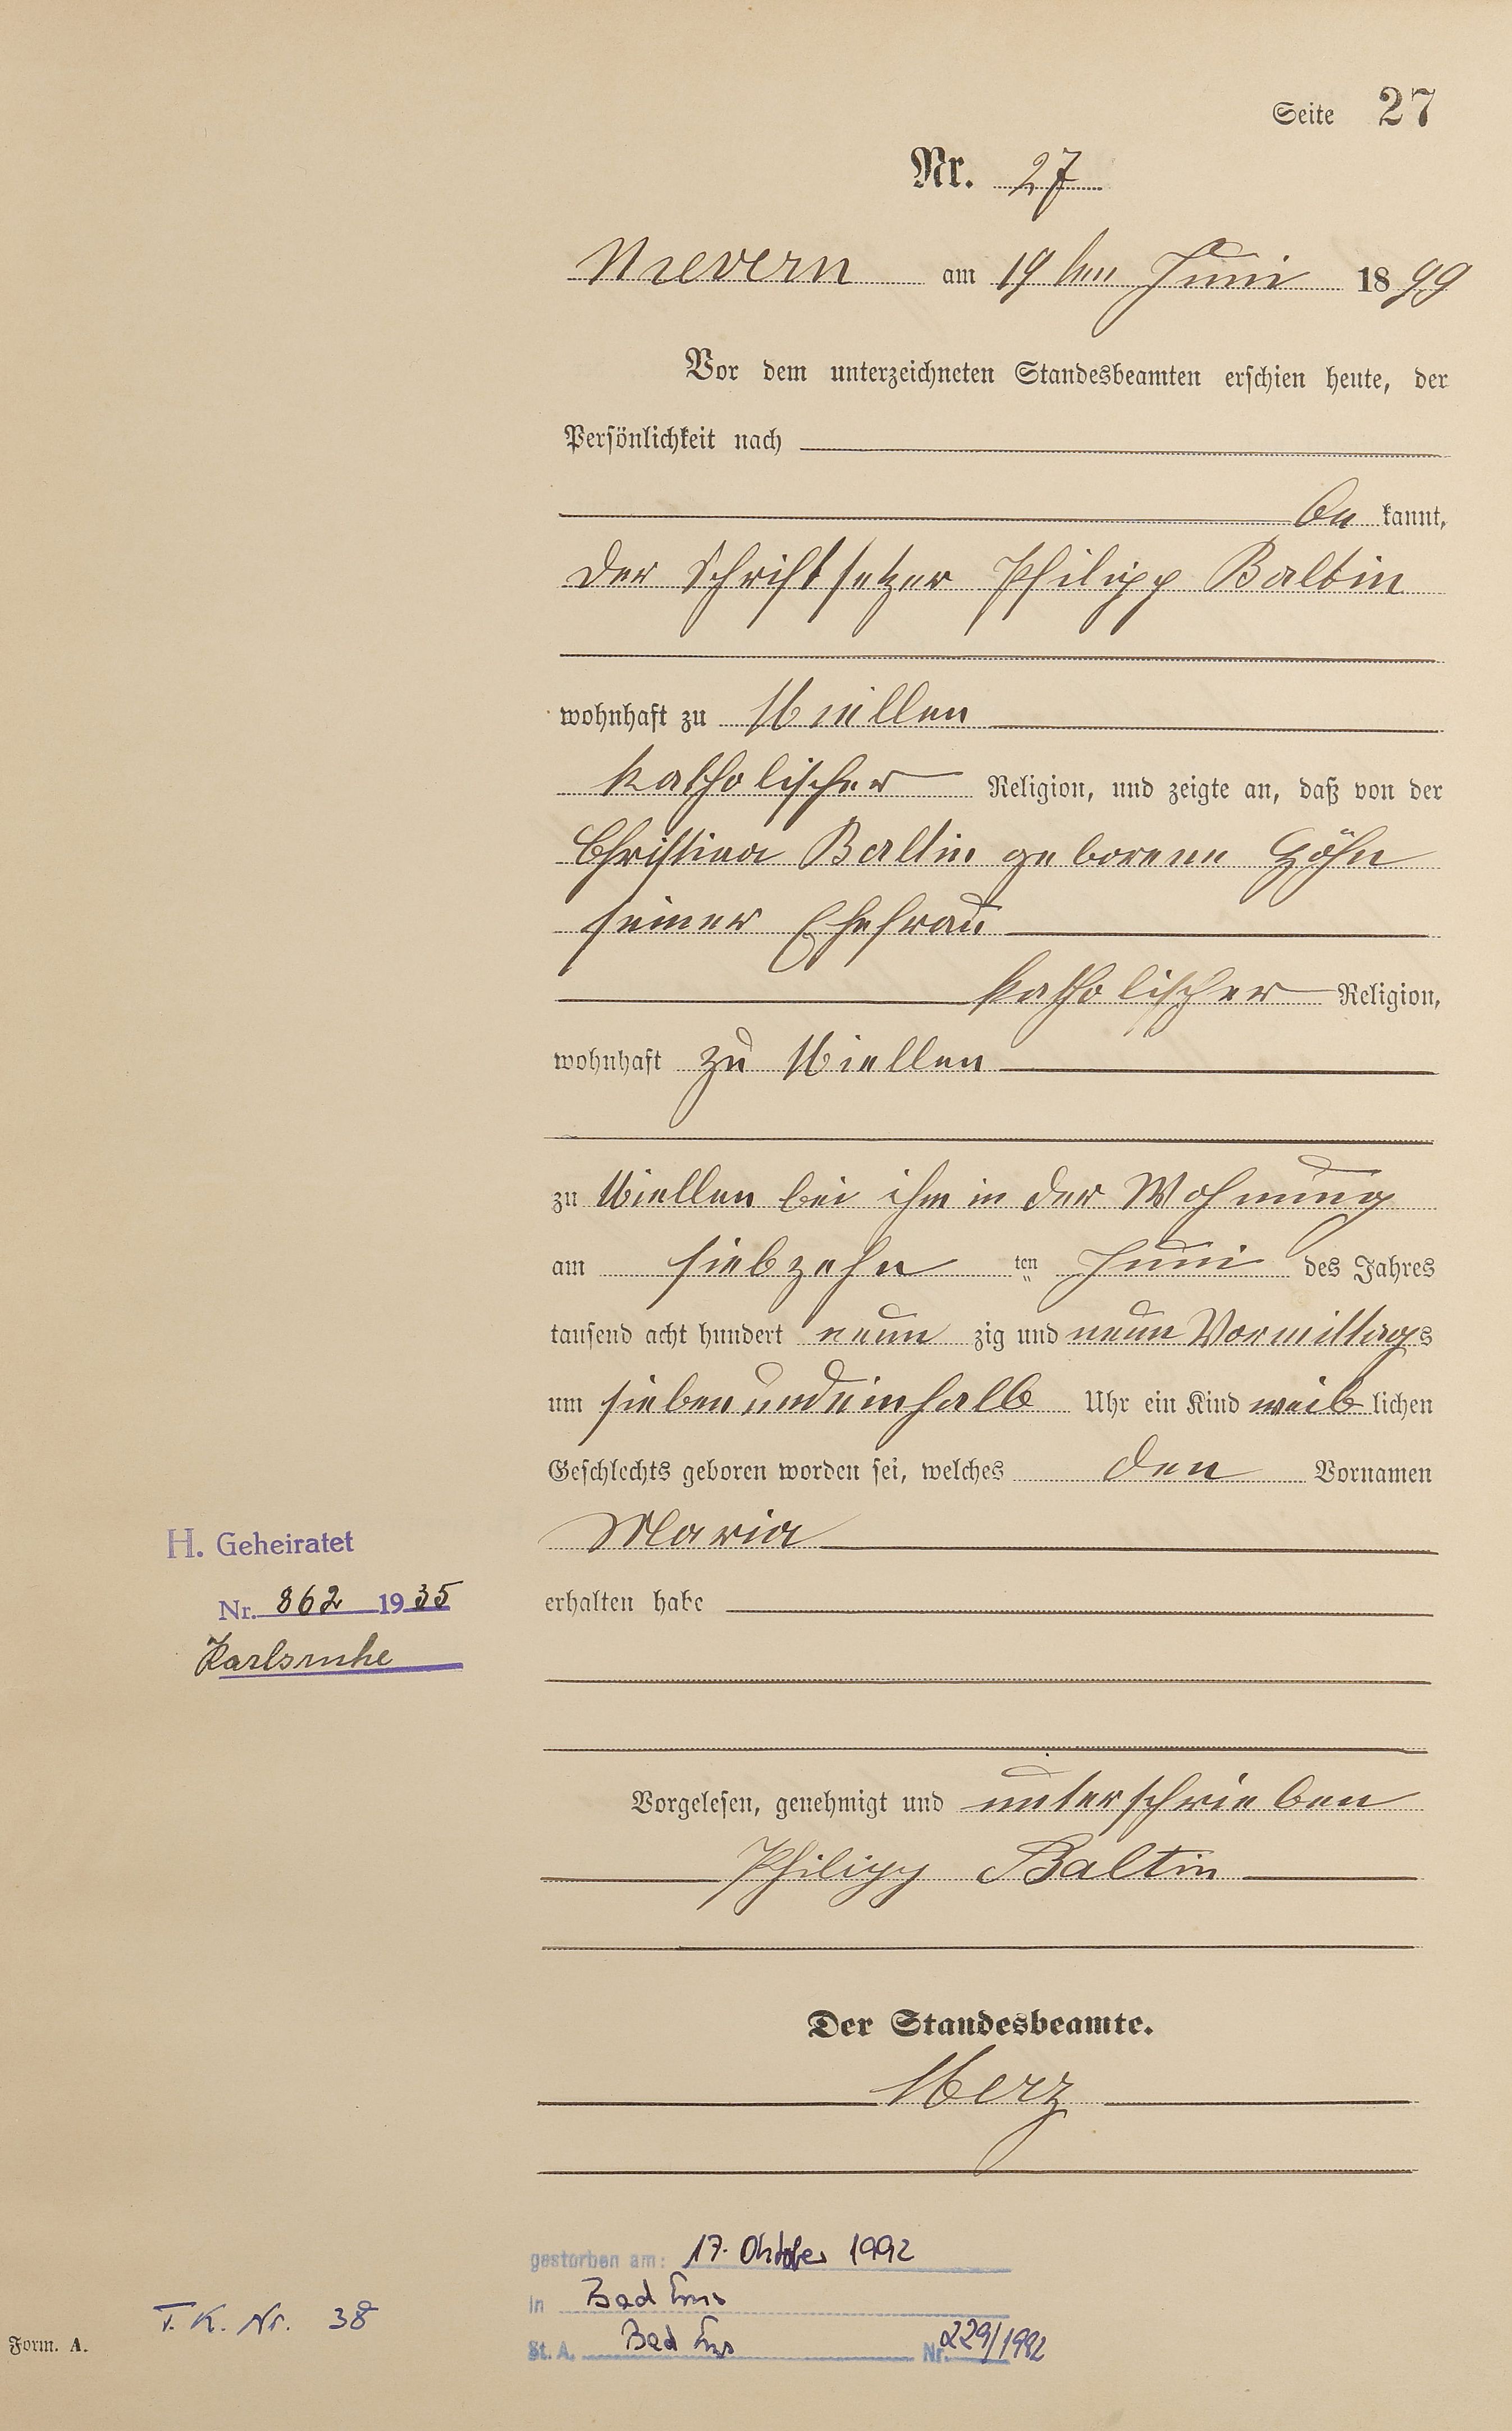 Seite 27
Nr. 27
Nievern am 19ten Juni 1899
Vor dem unterzeichneten Standesbeamten erschien heute, der
Persönlichkeit nach
be kannt,
der Schriftsetzer Philipp Baltin
wohnhaft zu Miellen
katholischer Religion, und zeigte an, daß von der
Christina Baltin geborene Höhn
seiner Ehefrau
katholischer Religion,
wohnhaft zu Miellen
zu Miellen bei ihm in der Wohnung
am siebzehn ten Juni des Jahres
tausend acht hundert neun zig und neun Vormittags
um siebenundeinhalb Uhr ein Kind weib lichen
Geschlechts geboren worden sei, welches den Vornamen
Maria
H. Geheiratet
Nr. 862 1935
Karlsruhe
erhalten habe
Vorgelesen, genehmigt und unterschrieben
Philipp Baltin
Der Standesbeamte.
Merz
gestorben am: 17. Oktober 1992
in Bad Ems
St. A. Bad Ems Nr. 229/1992
T. K. Nr. 38
Form. A.